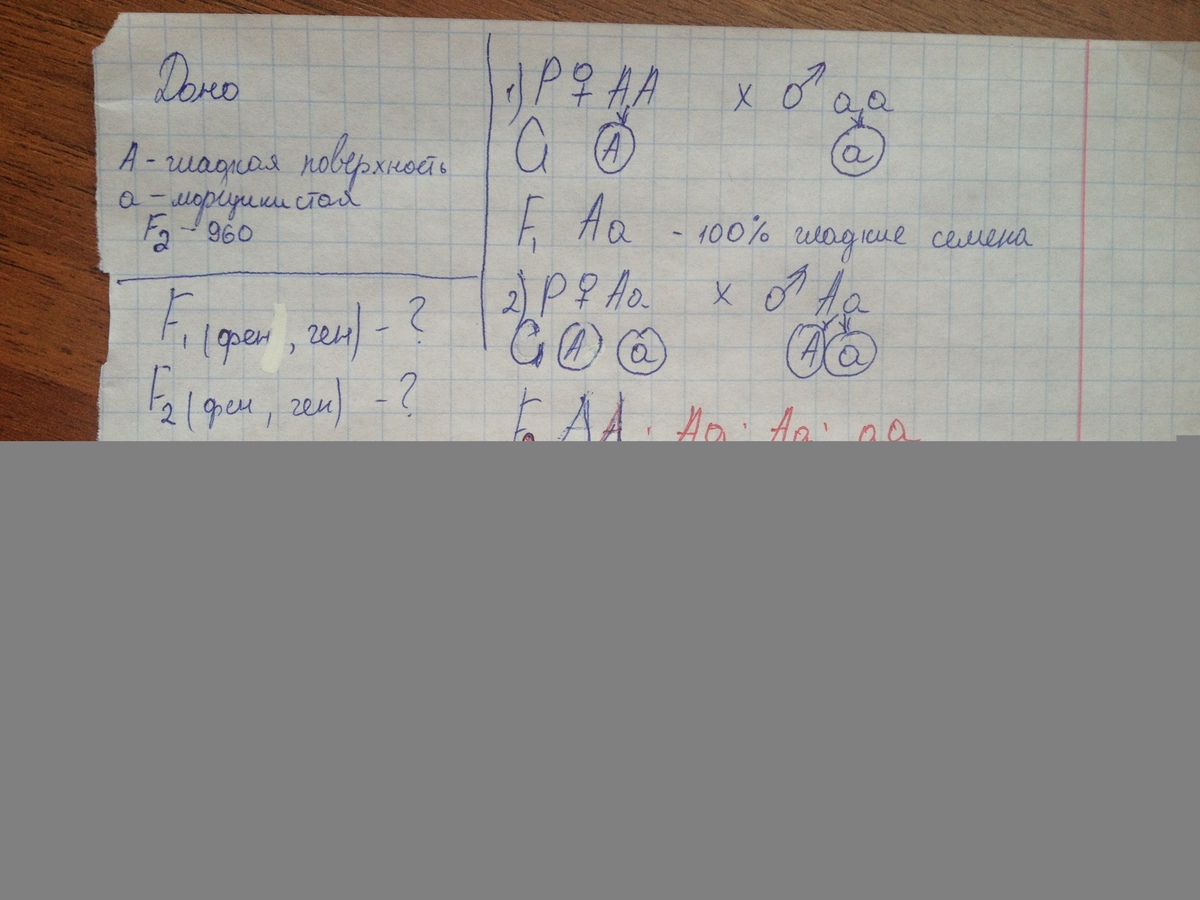 Дано
А - гладкая поверхность
а - морщинистая
F2 - 960
F1 (фен, ген) - ?
F2 (фен, ген) - ?
1) P ♀ AA x ♂ aa
G A a
F1 Aa - 100% гладкие семена
2) P ♀ Aa x ♂ Aa
G A a A a
F2 AA : Aa : Aa : aa